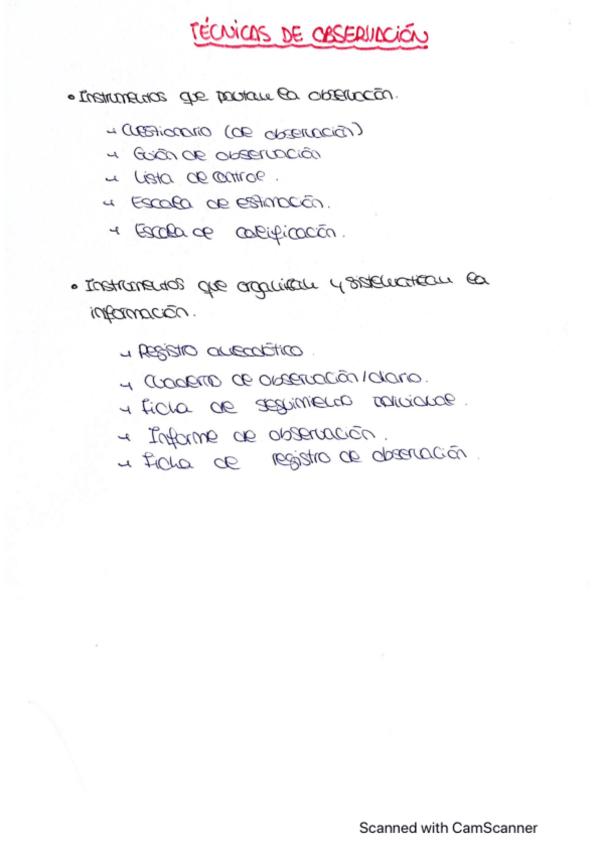 TÉCNICAS DE OBSERVACIÓN
• Instrumentos que pautan la observación.
→ Cuestionario (de observación)
→ Guión de observación
→ Lista de control.
→ Escala de estimación.
→ Escala de calificación.
• Instrumentos que organizan y sistematizan la
información.
→ Registro anecdótico.
→ Cuaderno de observación/diario.
→ Ficha de seguimiento individual.
→ Informe de observación.
→ Ficha de registro de observación.
Scanned with CamScanner